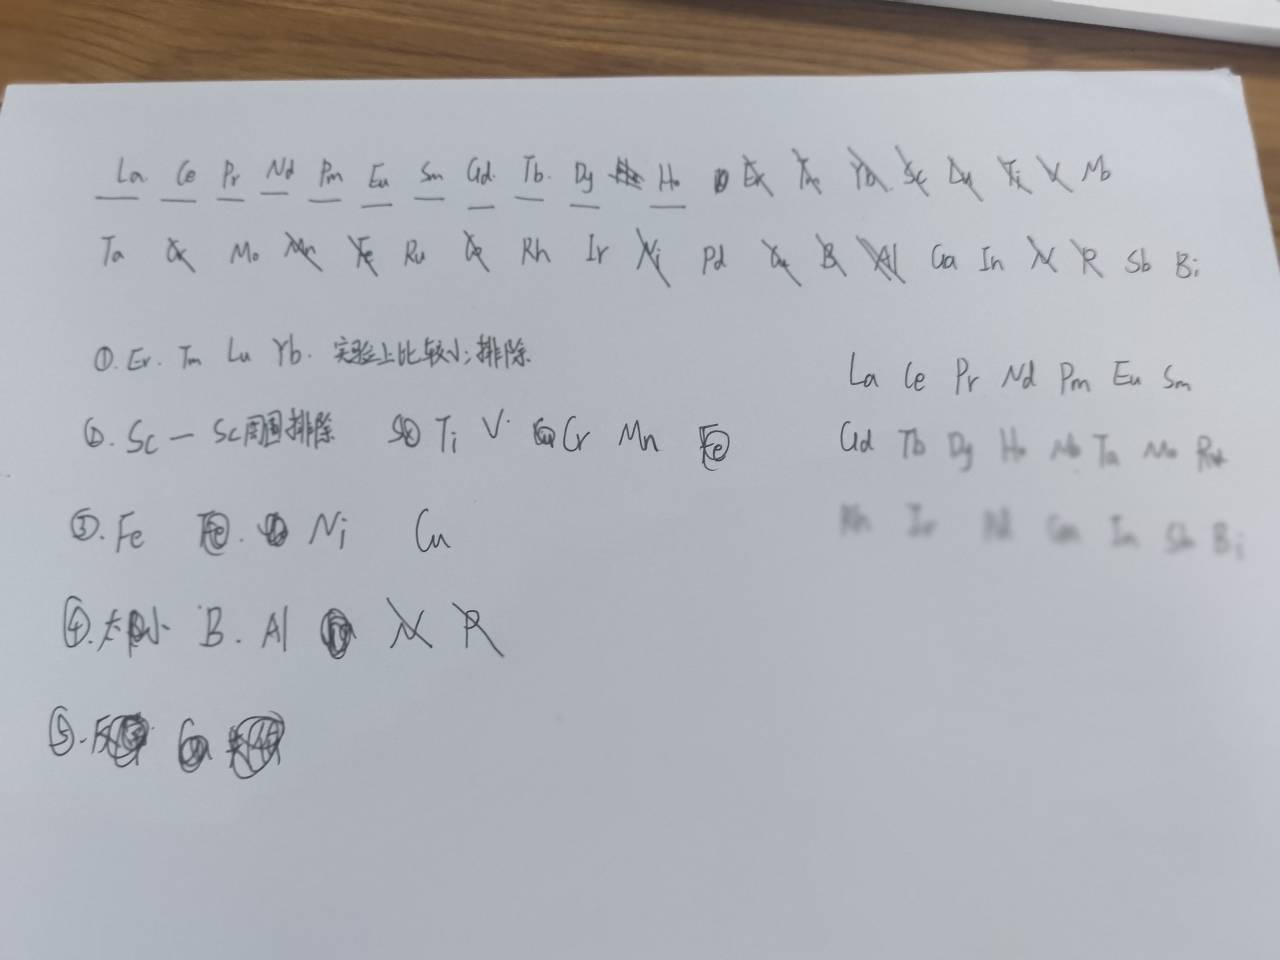 La Ce Pr Nd Pm Eu Sm Gd Tb. Dy Ho Er Tm Yb Sc Lu Ti V Nb
Ta Cr Mo Mn Fe Ru Co Rh Ir Ni Pd Cu B Al Ga In N P Sb Bi
①. Er. Tm Lu Yb. 实验上比较小,排除
②. Sc — Sc周围排除 Ti V Cr Mn
③. Fe Ni Cu
④. 太小 B. Al N P
⑤.
La Ce Pr Nd Pm Eu Sm
Gd Tb Dy Ho Nb Ta Mo Ru
Rh Ir Pd Ga In Sb Bi